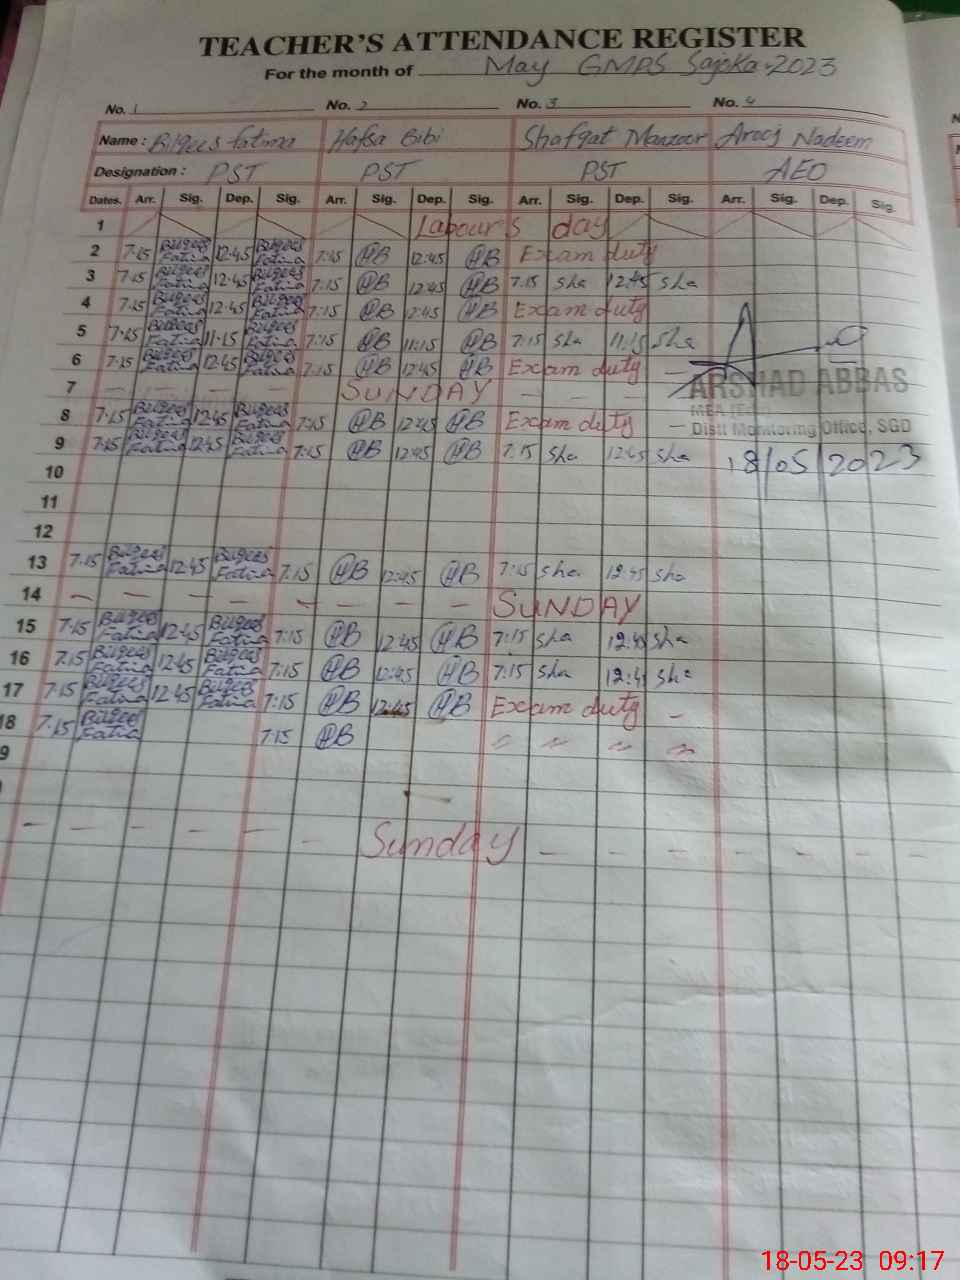 TEACHER'S ATTENDANCE REGISTER
For the month of May GMPS Sajoka-2023
No. 1 No. 2 No. 3 No. 4
Name: Bilqees Fatima Hafsa Bibi Shafqat Manzoor Arooj Nadeem
Designation: PST PST PST AEO
Dates. Arr. Sig. Dep. Sig. Arr. Sig. Dep. Sig. Arr. Sig. Dep. Sig. Arr. Sig. Dep. Sig.
1 Labour's day
2 7:15 Bilqees Fatima 12:45 Bilqees Fatima 7:15 HB 12:45 HB Exam duty
3 7:15 Bilqees Fatima 12:45 Bilqees Fatima 7:15 HB 12:45 HB 7:15 Sha 12:45 Sha
4 7:15 Bilqees Fatima 12:45 Bilqees Fatima 7:15 HB 12:45 HB Exam duty
5 7:15 Bilqees Fatima 11:15 Bilqees Fatima 7:15 HB 11:15 HB 7:15 Sha 11:15 Sha
6 7:15 Bilqees Fatima 12:45 Bilqees Fatima 7:15 HB 12:45 HB Exam duty –
ARSHAD ABBAS
7 – – – – SUNDAY – – – –
MEA
8 7:15 Bilqees Fatima 12:45 Bilqees Fatima 7:15 HB 12:45 HB Exam duty –
Distt Monitoring Office, SGD
9 7:15 Bilqees Fatima 12:45 Bilqees Fatima 7:15 HB 12:45 HB 7:15 Sha 12:45 Sha
18/05/2023
10
11
12
13 7:15 Bilqees Fatima 12:45 Bilqees Fatima 7:15 HB 12:45 HB 7:15 Sha 12:45 Sha
14 – – – – – – – – SUNDAY
15 7:15 Bilqees Fatima 12:45 Bilqees Fatima 7:15 HB 12:45 HB 7:15 Sha 12:45 Sha
16 7:15 Bilqees Fatima 12:45 Bilqees Fatima 7:15 HB 12:45 HB 7:15 Sha 12:45 Sha
17 7:15 Bilqees Fatima 12:45 Bilqees Fatima 7:15 HB 12:45 HB Exam duty –
18 7:15 Bilqees Fatima 7:15 HB " " " "
9
– – – – – – Sunday – – – – – – –
18-05-23 09:17